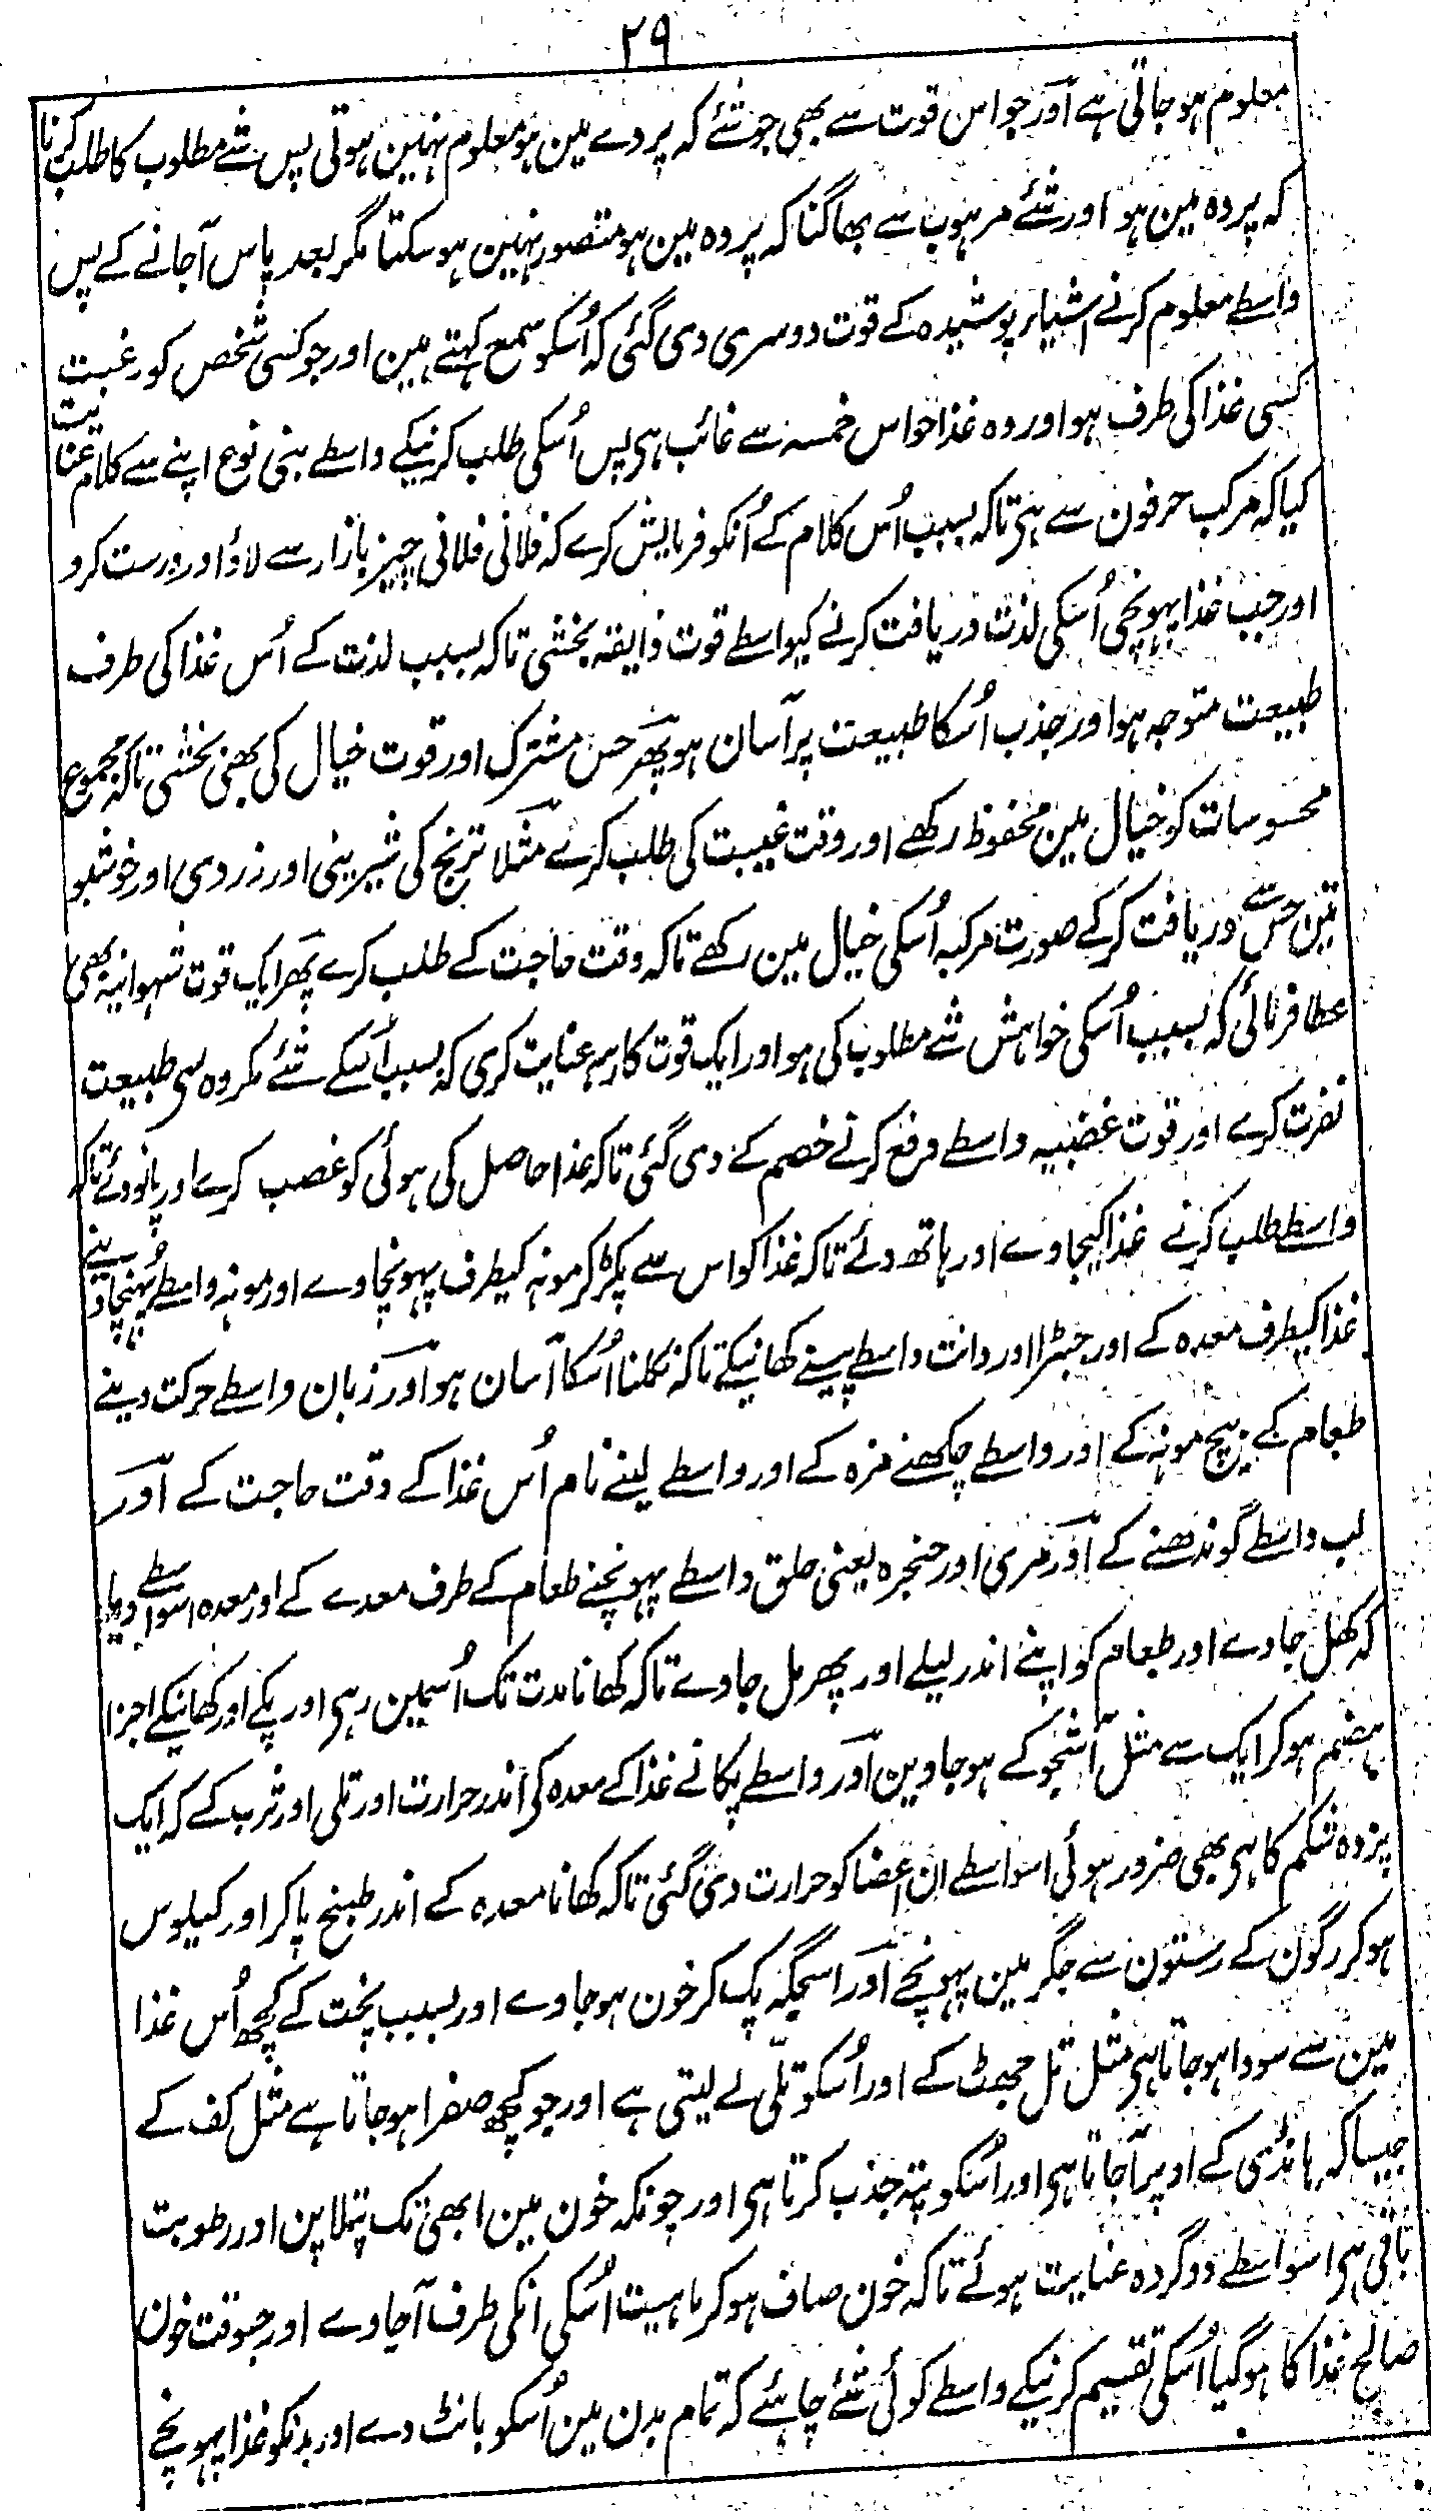 ۲۹
معلوم ہو جاتی ہے اور جو اس قوت سے بھی جو شئے کہ پردے مین ہو معلوم نہین ہوتی پس شئے مطلوب کا طلب کرنا
کہ پردہ مین ہو اور شئے مرہوب سے بھاگنا کہ پردہ مین ہو متصور نہین ہو سکتا مگر بعد پاس آجانے کے پس
واسطے معلوم کرنے اشیاء پوشیدہ کے قوت دوسری دی گئی کہ اُسکو سمع کہتے ہین اور جو کسی شخص کو رغبت
کسی غذا کی طرف ہو اور وہ غذا حواس خمسہ سے غائب ہی پس اُسکی طلب کرنیکے واسطے بنی نوع اپنے سے کلام عنایت
کیا کہ مرکب حرفون سے ہی تاکہ بسبب اُس کلام کے اُنکو فرمایش کرے کہ فلانی فلانی چیز بازار سے لاؤ اور درست کرو
اور جب غذا پہونچی اُسکی لذت دریافت کرنے کیواسطے قوت ذایقہ بخشی تاکہ بسبب لذت کے اُس غذا کی طرف
طبیعت متوجہ ہو اور جذب اُسکا طبیعت پر آسان ہو پھر حس مشترک اور قوت خیال کی بھی بخشی تاکہ مجموع
محسوسات کو خیال مین محفوظ رکھے اور وقت غیبت کی طلب کرے مثلا ترنج کی شیرینی اور زردی اور خوشبو
تین حس سے دریافت کرکے صورت مرکبہ اُسکی خیال مین رکھے تاکہ وقت حاجت کے طلب کرے پھر ایک قوت شہوانیہ بھی
عطا فرمائی کہ بسبب اُسکی خواہش شئے مطلوب کی ہو اور ایک قوت کارہہ عنایت کری کہ بسبب اُسکے شئے مکروہ سی طبیعت
نفرت کرے اور قوت غضبیہ واسطے دفع کرنے خصم کے دی گئی تاکہ غذا حاصل کی ہوئی کو غصب کرے اور پانو دئے تاکہ
واسطے طلب کرنے غذا کیجاوے اور ہاتھ دئے تاکہ غذا کو اس سے پکڑ کر مونہ کیطرف پہونچاوے اور مونہ واسطے پُہنچا دینے
غذا کیطرف معدہ کے اور جبڑا اور دانت واسطے پیسنے کھانیکے تاکہ نگلنا اُسکا آسان ہو اور زبان واسطے حرکت دینے
طعام کے بیچ مونہ کے اور واسطے چکھنے مزہ کے اور واسطے لینے نام اُس غذا کے وقت حاجت کے اور
لب واسطے گوندھنے کے اور مری اور حنجرہ یعنی حلق واسطے پہونچنے طعام کے طرف معدے کے اور معدہ اسواسطے دیا
کہ کھل جاوے اور طعام کو اپنے اندر لیلے اور پھر مل جاوے تاکہ کھانا مدت تک اُسمین رہی اور پکے اور کھانیکے اجزا
ہضم ہو کر ایک سے مثل آشجو کے ہو جاوین اور واسطے پکانے غذا کے معدہ کی اندر حرارت اور تلی اور ثرب کے کہ ایک
پردہ شکم کا ہی بھی ضرور ہوئی اسواسطے ان اعضا کو حرارت دی گئی تاکہ کھانا معدہ کے اندر طبخ پاکر اور کیلوس
ہو کر رگون کے رستون سے جگر مین پہونچے اور اسجگہ پک کر خون ہو جاوے اور بسبب پخت کے کچھ اُس غذا
مین سے سودا ہو جاتا ہی مثل تل چھٹ کے اور اُسکو تلّی لے لیتی ہے اور جو کچھ صفرا ہو جاتا ہے مثل کف کے
جیسا کہ ہانڈی کے اوپر آجاتا ہی اور اُسکو پتہ جذب کرتا ہی اور چونکہ خون مین ابھی تک پتلا پن اور رطوبت
باقی ہی اسواسطے دو گردہ عنایت ہوئے تاکہ خون صاف ہو کر ماہیت اُسکی انکی طرف آجاوے اور جسوقت خون
صالح غذا کا ہو گیا اُسکی تقسیم کرنیکے واسطے کوئی شئے چاہئے کہ تمام بدن مین اُسکو بانٹ دے اور بدنکو غذا پہونچے